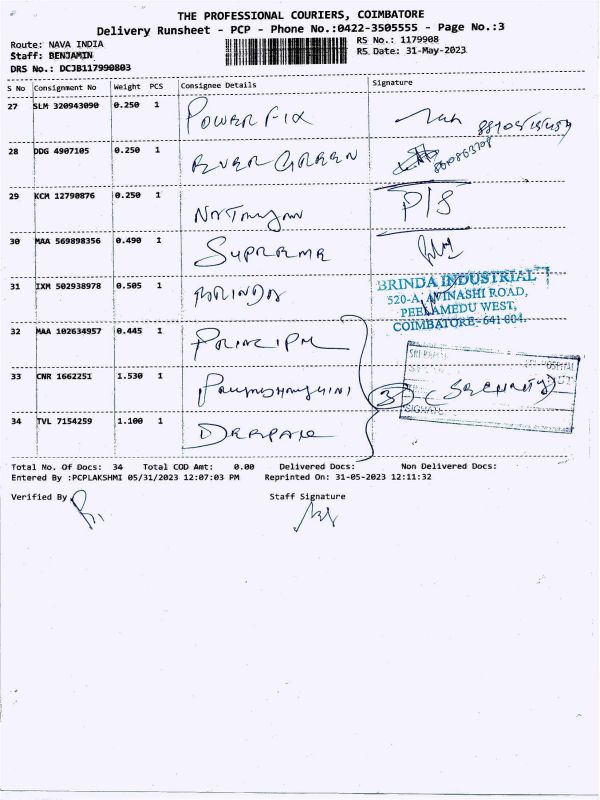 THE PROFESSIONAL COURIERS, COIMBATORE
Delivery Runsheet - PCP - Phone No.:0422-3505555 - Page No.:3
Route: NAVA INDIA
RS No.: 1179908
Staff: BENJAMIN
RS Date: 31-May-2023
DRS No.: DCJB117990803
S No Consignment No Weight PCS Consignee Details Signature
27 SLM 320943090 0.250 1 POWER FIX
28 DDG 4907105 0.250 1 EVER GREEN
29 KCM 12790876 0.250 1 P/S
30 MAA 569898356 0.490 1 SUPREME
31 IXM 502938978 0.505 1 BRINDA
BRINDA INDUSTRIAL
520-A, AVINASHI ROAD,
PEELAMEDU WEST,
COIMBATORE-641 004.
32 MAA 102634957 0.445 1 PRINCIPAL
33 CNR 1662251 1.530 1 3 (Security)
SIGNATU
34 TVL 7154259 1.100 1
Total No. Of Docs: 34 Total COD Amt: 0.00 Delivered Docs: Non Delivered Docs:
Entered By :PCPLAKSHMI 05/31/2023 12:07:03 PM Reprinted On: 31-05-2023 12:11:32
Verified By Staff Signature